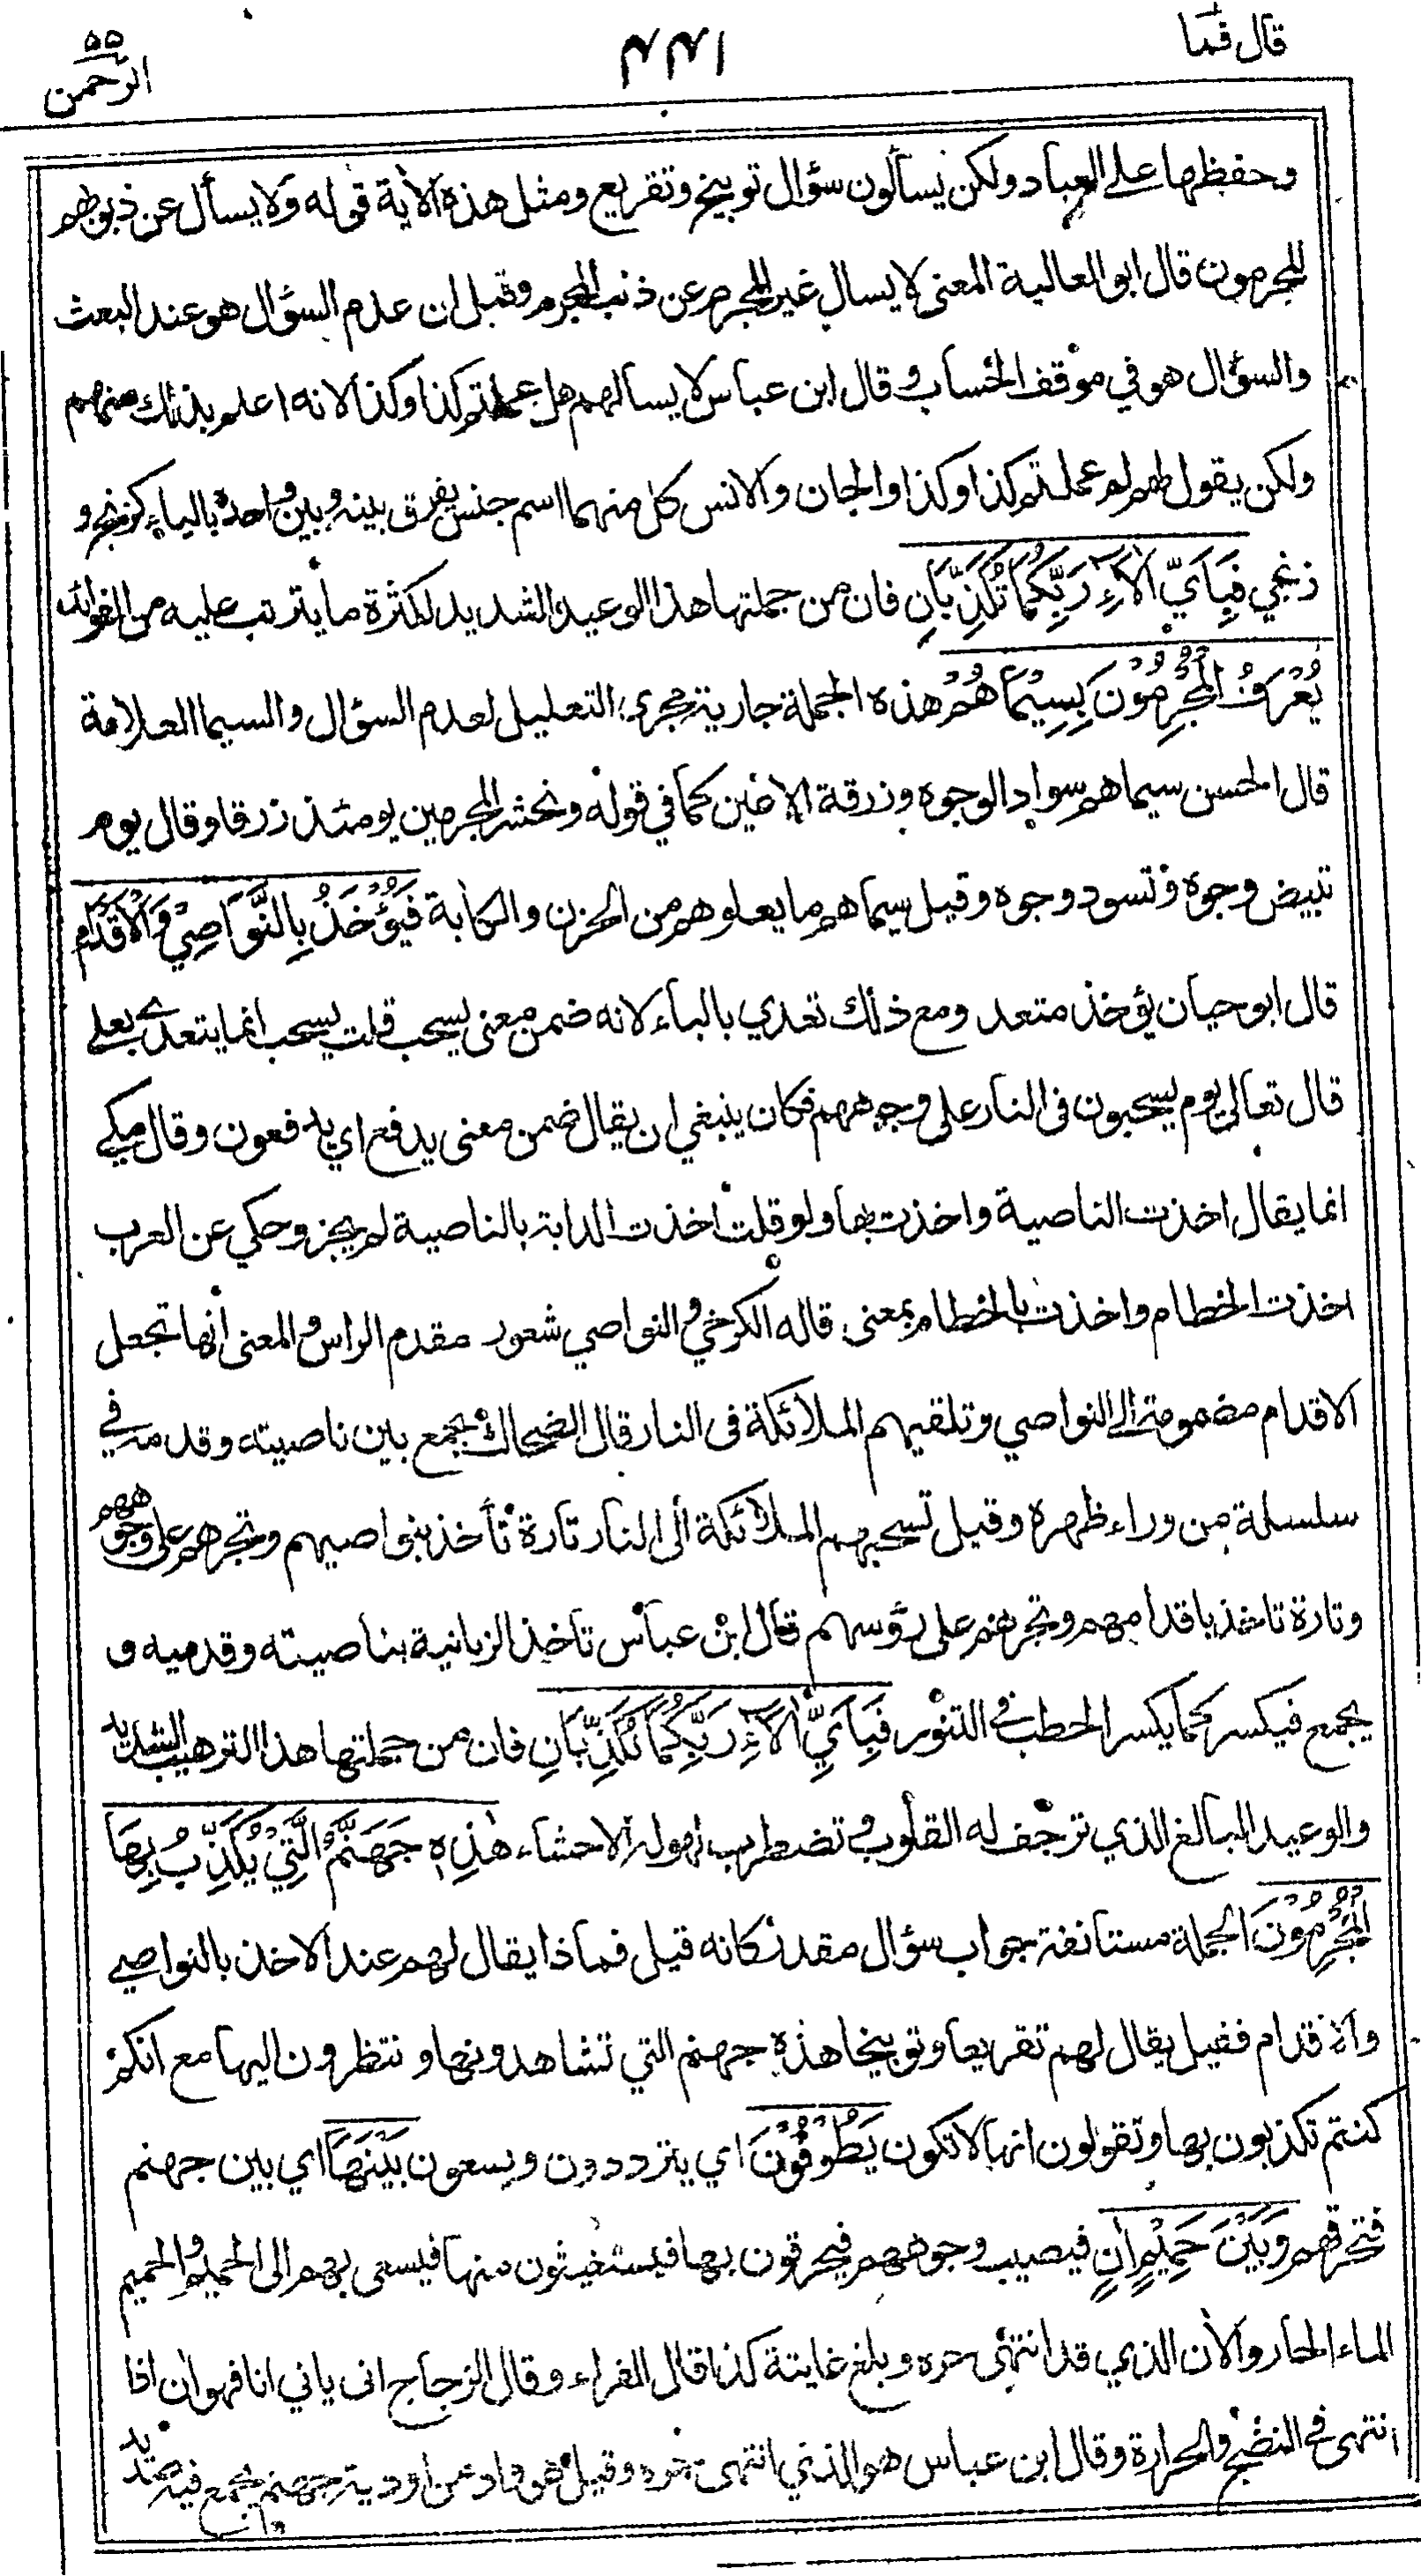 قال فما
٤٤١
٥٥
الرحمن
وحفظها على العباد ولكن يسألون سؤال توبيخ وتقريع ومثل هذه الآية قوله ولا يسأل عن ذنوبهم
المجرمون قال ابو العالية المعنى لا يسال غير المجرم عن ذنب المجرم وقيل ان عدم السؤال هو عند البعث
والسؤال هو في موقف الحساب وقال ابن عباس لا يسالهم هل عملتم كذا وكذا لانه اعلم بذلك منهم
ولكن يقول لهم لم عملتم كذا وكذا والجان والانس كل منهما اسم جنس يفرق بينه وبين واحده بالياء كزنج و
زنجي فَبِاَيِّ اٰلَاءِ رَبِّكُمَا تُكَذِّبَانِ فان من جملتها هذا الوعيد الشديد لكثرة ما يترتب عليه من الفوائد
يُعْرَفُ الْمُجْرِمُوْنَ بِسِيْمَاهُمْ هذه الجملة جارية مجرى التعليل لعدم السؤال والسيما العلامة
قال الحسن سيماهم سواد الوجوه وزرقة الاعين كما في قوله ونحشر المجرمين يومئذ زرقا وقال يوم
تبيض وجوه وتسود وجوه وقيل سيماهم ما يعلوهم من الحزن والكابة فَيُؤْخَذُ بِالنَّوَاصِيْ وَالْاَقْدَامِ
قال ابو حيان يؤخذ متعد ومع ذلك تعدي بالباء لانه ضمن معنى يسحب قلت يسحب انما يتعدى بعلى
قال تعالى يوم يسحبون فى النار على وجوههم فكان ينبغي ان يقال ضمن معنى يدفع اي يدفعون وقال مكي
انما يقال اخذت الناصية واخذت بها ولو قلت اخذت الدابة بالناصية لم يجز وحكي عن العرب
اخذت الخطام واخذت بالخطام بمعنى قاله الكرخي والنواصي شعور مقدم الراس والمعنى انها تجعل
الاقدام مضمومة الى النواصي وتلقيهم الملائكة فى النار قال الضحاك يجمع بين ناصيته وقدمه في
سلسلة من وراء ظهره وقيل تسحبهم الملائكة الى النار تارة تأخذ بنواصيهم وتجرهم على وجوههم
وتارة تاخذ باقدامهم وتجرهم على رؤسهم قال ابن عباس تاخذ الزبانية بناصيته وقدميه و
يجمع فيكسر كما يكسر الحطب في التنور فَبِاَيِّ اٰلَاءِ رَبِّكُمَا تُكَذِّبَانِ فان من جملتها هذا الترهيب الشديد
والوعيد البالغ الذي ترجف له القلوب وتضطرب لهوله الاحشاء هٰذِهٖ جَهَنَّمُ الَّتِيْ يُكَذِّبُ بِهَا
الْمُجْرِمُوْنَ الجملة مستانفة جواب سؤال مقدر كانه قيل فماذا يقال لهم عند الاخذ بالنواصي
والاقدام فقيل يقال لهم تقريعا وتوبيخا هذه جهنم التي تشاهدونها وتنظرون اليها مع انكم
كنتم تكذبون بها وتقولون انها لا تكون يَطُوْفُوْنَ اي يترددون ويسعون بَيْنَهَا اي بين جهنم
فتحرقهم وَبَيْنَ حَمِيْمٍ اٰنٍ فيصيب وجوههم فيحرقون بها فيستغيثون منها فيسعى بهم الى الحميم والحميم
الماء الحار والآن الذي قد انتهى حره وبلغ غايته كذا قال الفراء وقال الزجاج انى يانى انا فهو ان اذا
انتهى في النضج والحرارة وقال ابن عباس هو الذي انتهى حره وقيل هو واد من اودية جهنم يجمع فيه صديد